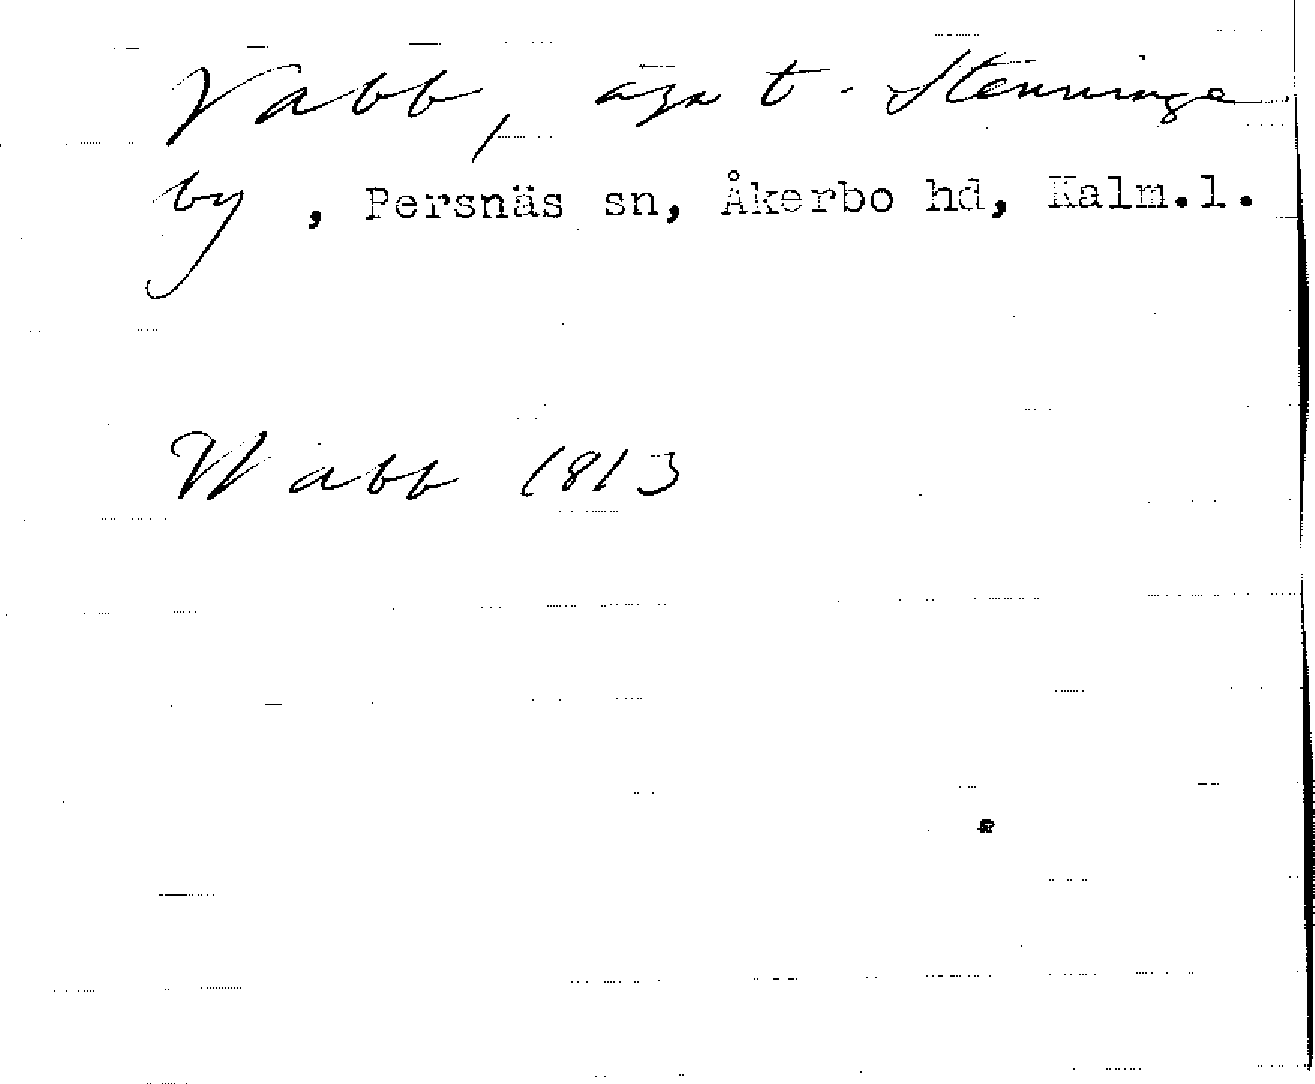 Vabb, äga t. Stenninge
by, Persnäs sn, Åkerbo hd, Kalm.l.
Wabb 1813